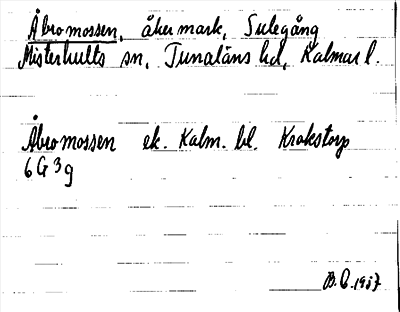 Åbromossen, åkermark, Sulegång
Misterhults sn, Tunaläns hd, Kalmar l.
Åbromossen ek. Kalm. bl. Krokstorp
6G 3g
B.E. 1937